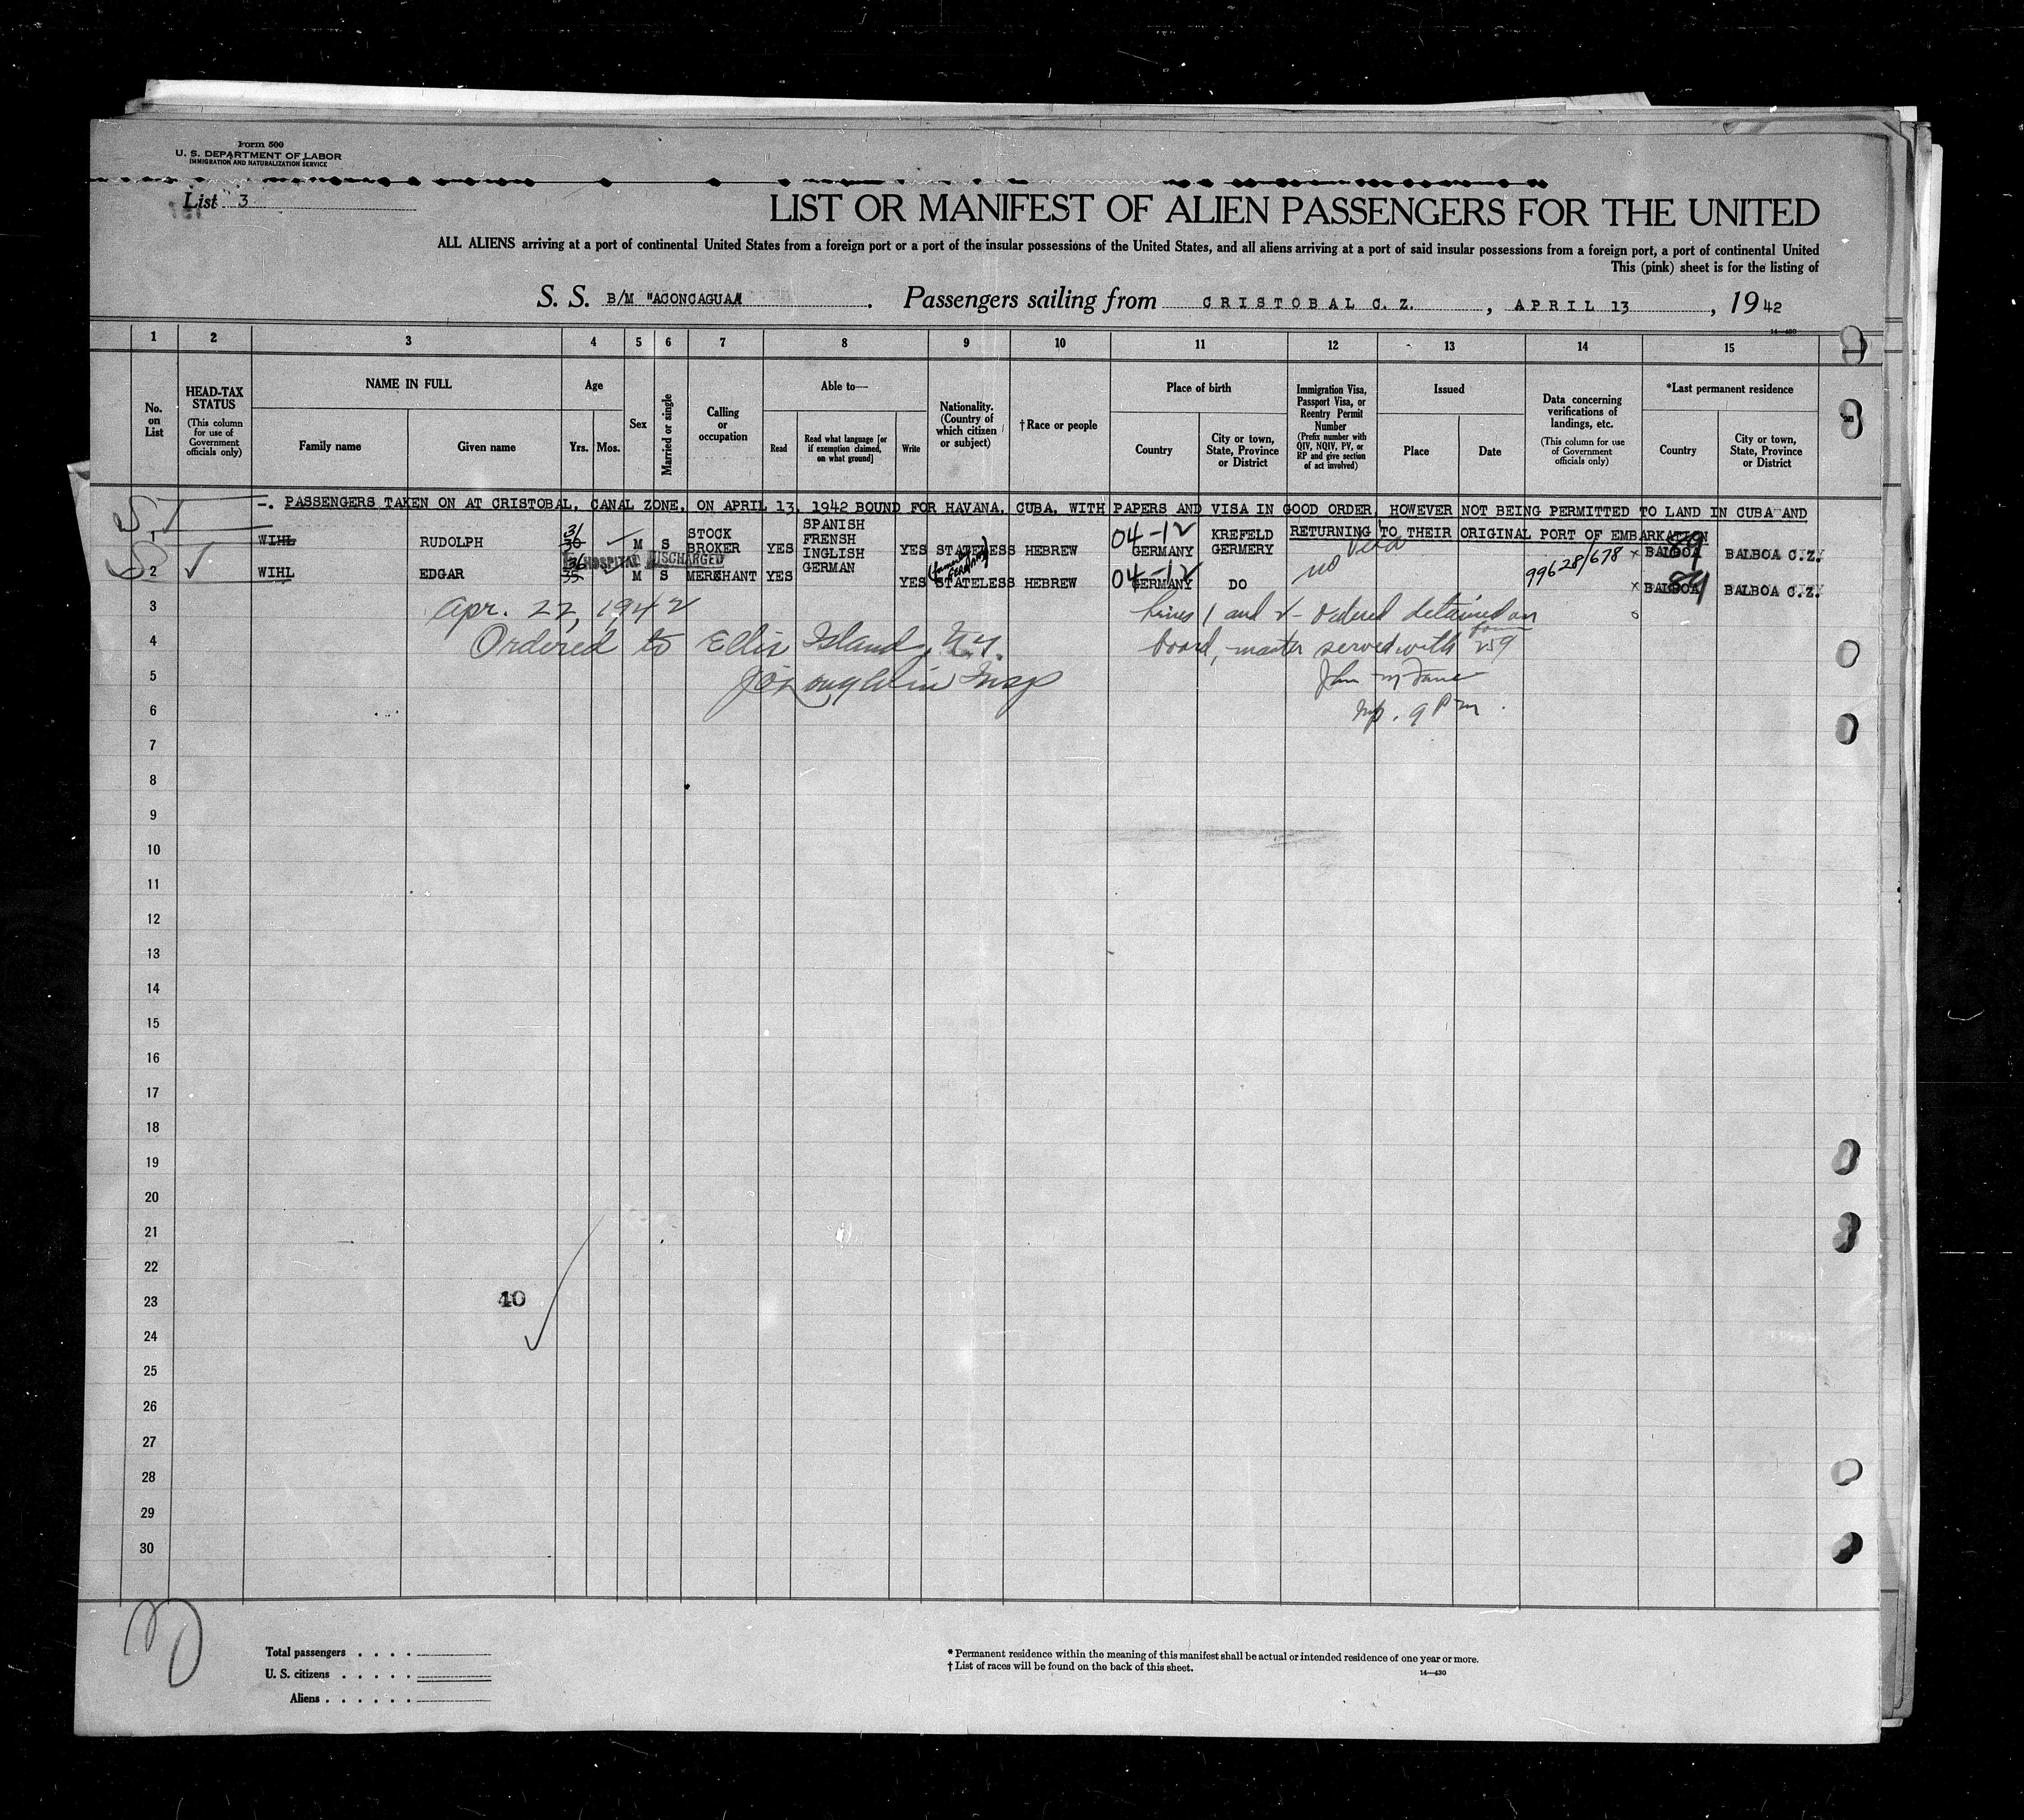 Form 500
U. S. DEPARTMENT OF LABOR
IMMIGRATION AND NATURALIZATION SERVICE
List 3
LIST OR MANIFEST OF ALIEN PASSENGERS FOR THE UNITED
ALL ALIENS arriving at a port of continental United States from a foreign port or a port of the insular possessions of the United States, and all aliens arriving at a port of said insular possessions from a foreign port, a port of continental United
This (pink) sheet is for the listing of
S. S. B/M "ACONCAGUA" . Passengers sailing from CRISTOBAL C. Z. , APRIL 13 , 1942
14—430
1 2 3 4 5 6 7 8 9 10 11 12 13 14 15
No. on List
HEAD-TAX STATUS
(This column for use of Government officials only)
NAME IN FULL
Family name Given name
Age
Yrs. Mos.
Sex
Married or single
Calling or occupation
Able to—
Read
Read what language [or if exemption claimed, on what ground]
Write
Nationality. (Country of which citizen or subject)
†Race or people
Place of birth
Country
City or town, State, Province or District
Immigration Visa, Passport Visa, or Reentry Permit Number
(Prefix number with QIV, NQIV, PV, or RP and give section of act involved)
Issued
Place Date
Data concerning verifications of landings, etc.
(This column for use of Government officials only)
*Last permanent residence
Country
City or town, State, Province or District
-. PASSENGERS TAKEN ON AT CRISTOBAL, CANAL ZONE, ON APRIL 13, 1942 BOUND FOR HAVANA, CUBA, WITH PAPERS AND VISA IN GOOD ORDER, HOWEVER NOT BEING PERMITTED TO LAND IN CUBA AND
RETURNING TO THEIR ORIGINAL PORT OF EMBARKATION
1 WIHL RUDOLPH 31 30 M S STOCK BROKER YES SPANISH FRENSH INGLISH GERMAN YES STATELESS HEBREW 04-12 GERMANY KREFELD GERMERY BALBOA 89 BALBOA C.Z.
HOSPITAL DISCHARGED
2 WIHL EDGAR 36 35 M S MERCHANT YES YES STATELESS HEBREW 04-12 GERMANY DO no visa 99628/678 BALBOA 89 BALBOA C.Z.
3 Apr. 22, 1942
Lines 1 and 2 - ordered detained on
4 Ordered to Ellis Island, N.Y.
board, master served with form 259
5 J O'Loughlin Insp
John M
6
Insp. 9 Pm.
7
8
9
10
11
12
13
14
15
16
17
18
19
20
21
22
23 40
24
25
26
27
28
29
30
Total passengers . . . .
U. S. citizens . . . . .
Aliens . . . . . .
* Permanent residence within the meaning of this manifest shall be actual or intended residence of one year or more.
† List of races will be found on the back of this sheet.
14—430